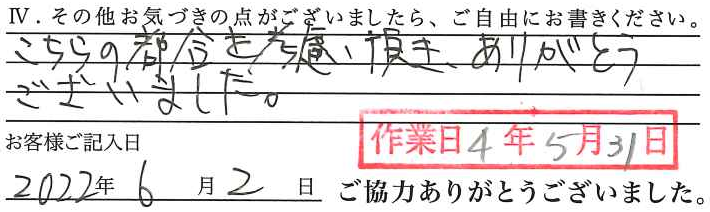 Ⅳ．その他お気づきの点がございましたら、ご自由にお書きください。
こちらの都合を 頂き、ありがとう
ございました。
お客様ご記入日
作業日4年5月31日
2022年6月2日
ご協力ありがとうございました。